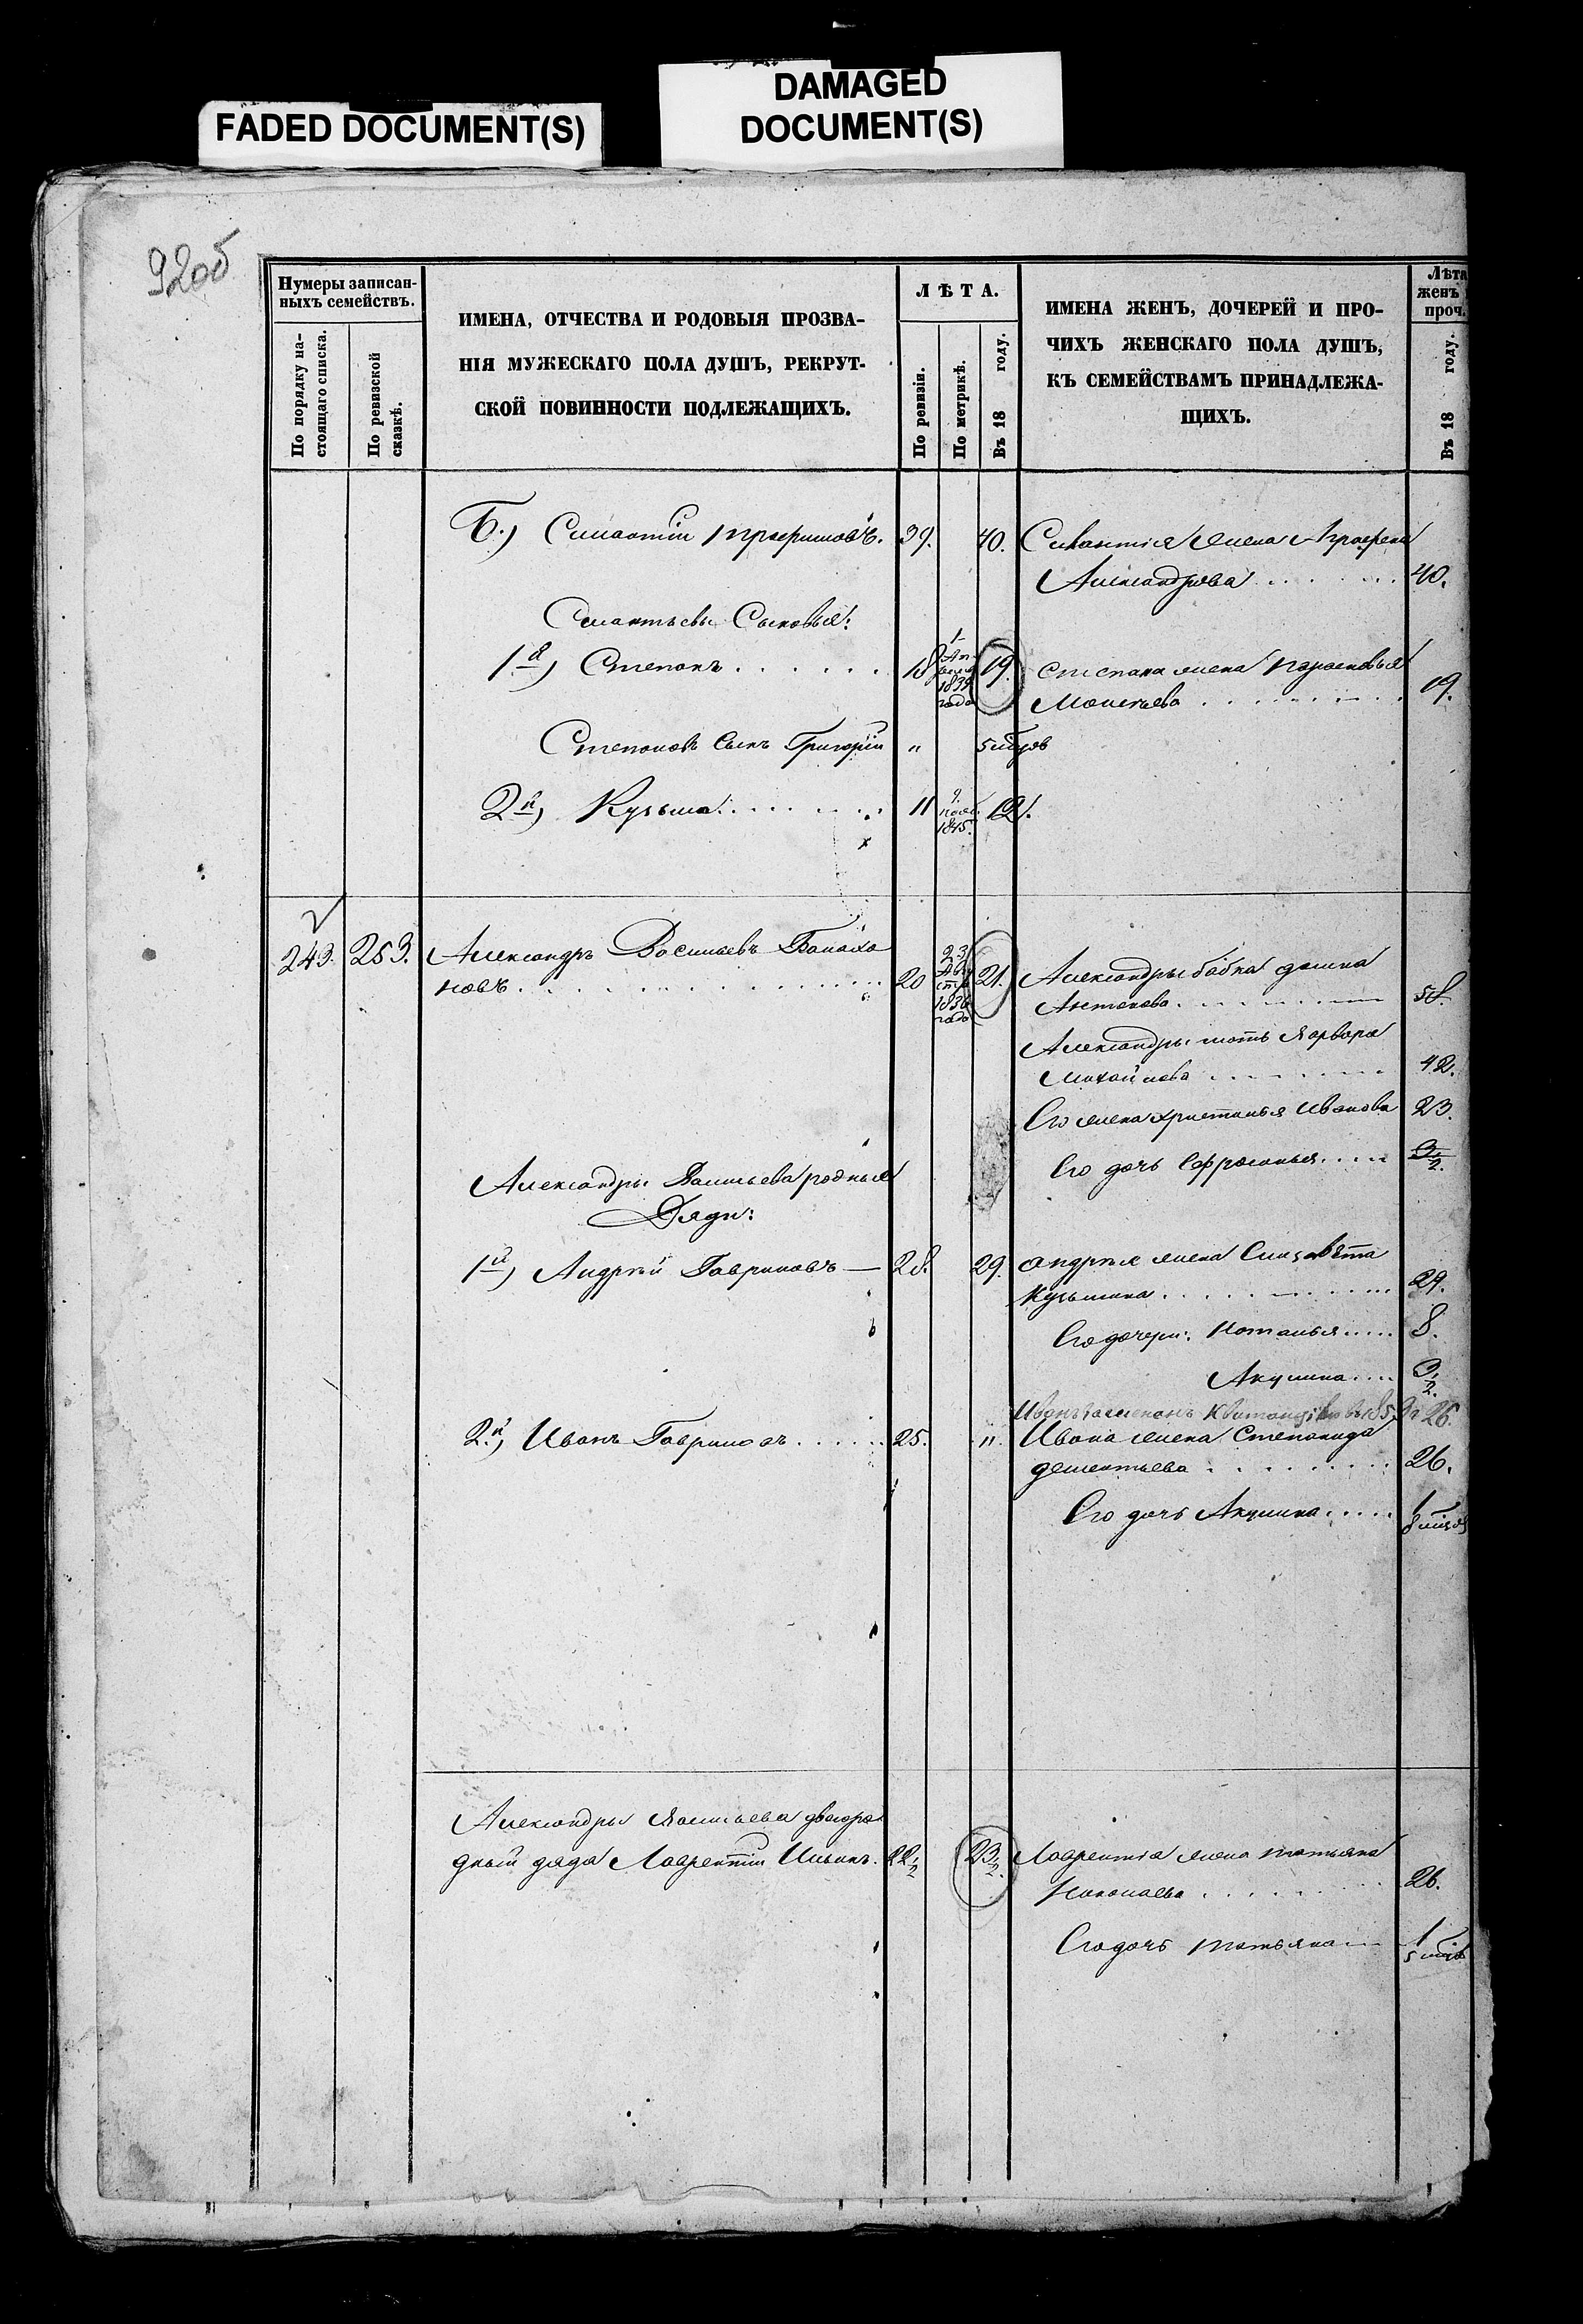 FADED DOCUMENT(S)
DAMAGED
DOCUMENT(S)
92об
Нумеры записан-
ныхъ семействъ.
По порядку на-
стоящаго списка.
По ревизской
сказкѣ.
ИМЕНА, ОТЧЕСТВА И РОДОВЫЯ ПРОЗВА-
НІЯ МУЖЕСКАГО ПОЛА ДУШЪ, РЕКРУТ-
СКОЙ ПОВИННОСТИ ПОДЛЕЖАЩИХЪ.
ЛѢТА.
По ревизіи.
По метрикѣ.
Въ 18 году.
ИМЕНА ЖЕНЪ, ДОЧЕРЕЙ И ПРО-
ЧИХЪ ЖЕНСКАГО ПОЛА ДУШЪ,
КЪ СЕМЕЙСТВАМЪ ПРИНАДЛЕЖА-
ЩИХЪ.
Лѣта
женъ
проч.
Въ 18 году.
Б.) Силантій Трофимовъ. 39. 40. Силантія жена Аграфена
Александрова 40.
Силантьевы Сыновья:
1й) Степанъ 18 1 Ап-
реля
1839
года 19. Степана жена Парасковья
Моисеева 19.
Степановъ сынъ Григорій " 5 мцов
2й) Кузьма 11 9. нояб. 1845. 12.
243. 253. Александръ Васильевъ Балахо
новъ 20 23
Авгу
ста
1836
года 21. Александры бабка
Антонова 58.
Александры мать Варвара
Михайлова 42.
Его жена Христинья Иванова 23.
Его дочь Ефросинья
Александры Васильева родныя
Дяди:
1й) Андрей Гавриловъ — 28. 29. Андрея жена Елизавѣта
Кузьмина 29.
Его дочери: Наталья 8.
Акулина
2й) Иванъ Гавриловъ 25. " Ивана жена Степанида
Дементьева 26.
Его дочь Акулина 1
8 мцов
Александры Васильева двоюро
дный дядя Лаврентій Ильинъ. 22 1/2 23 1/2. Лаврентія жена Татьяна
Николаева 26.
Его дочь Татьяна 1
5 мцов